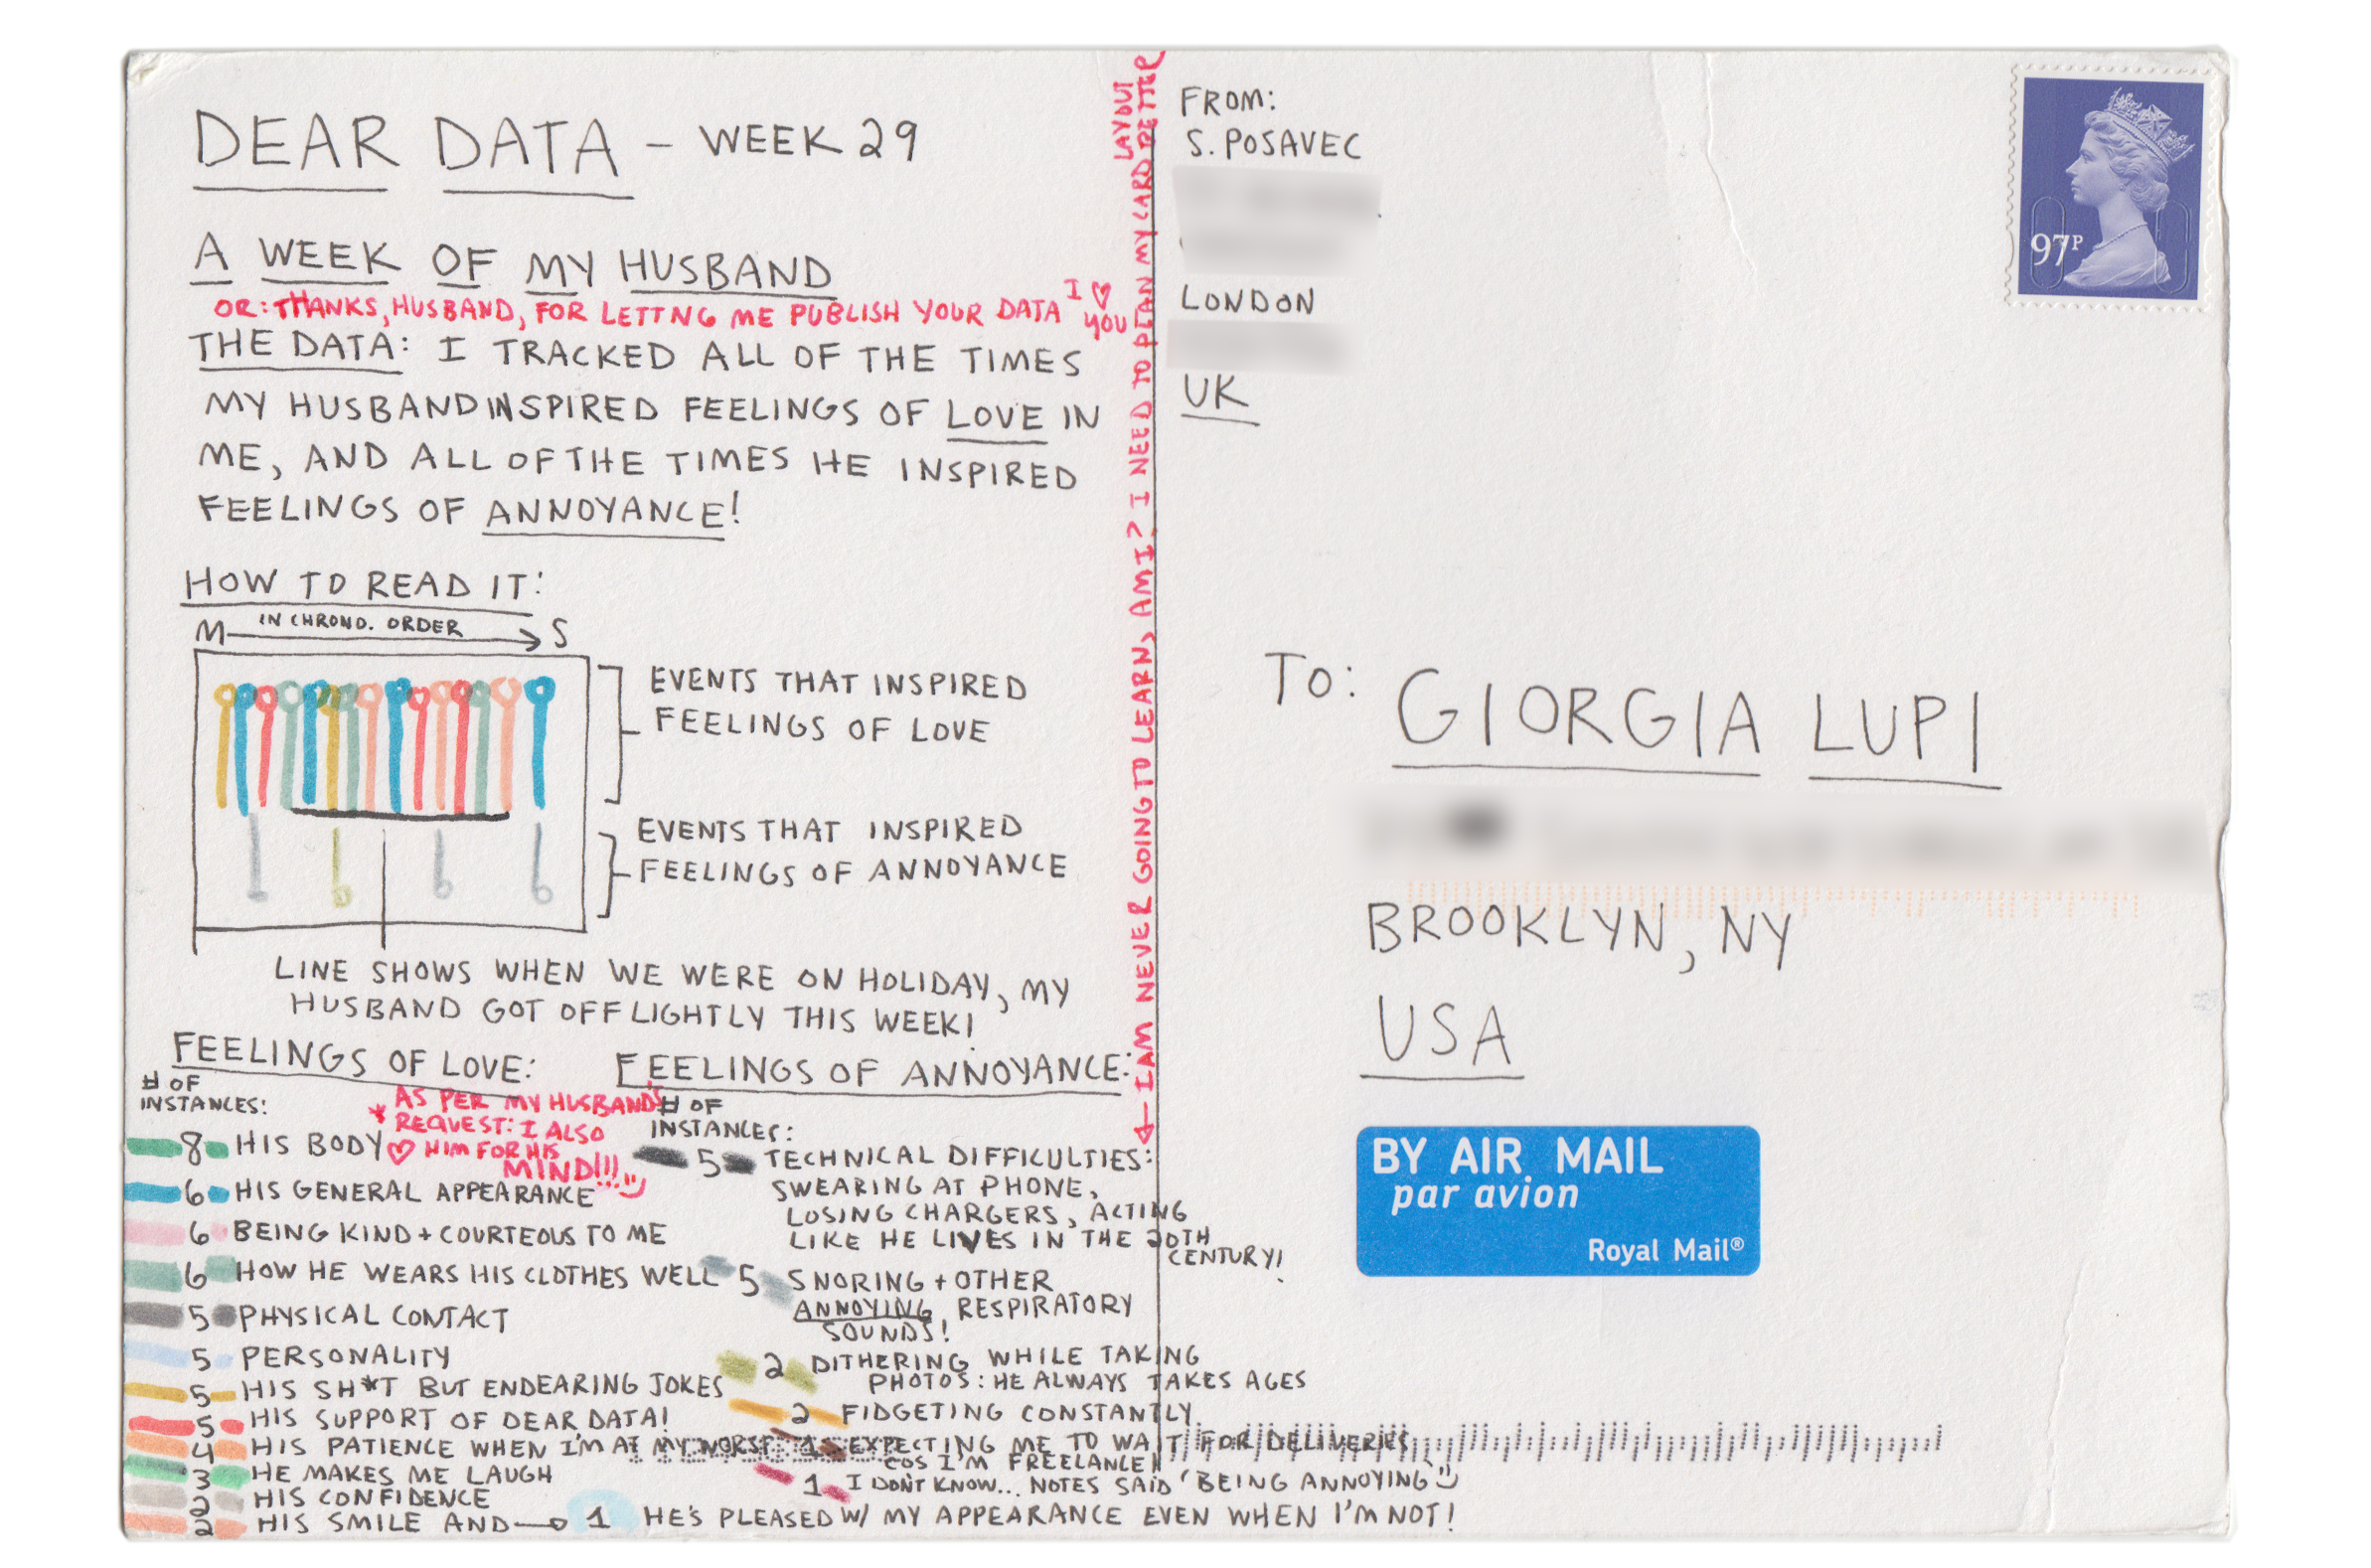 DEAR DATA - WEEK 29
A WEEK OF MY HUSBAND
OR: THANKS, HUSBAND, FOR LETTNG ME PUBLISH YOUR DATA I ♡ YOU
THE DATA: I TRACKED ALL OF THE TIMES
MY HUSBAND INSPIRED FEELINGS OF LOVE IN
ME, AND ALL OF THE TIMES HE INSPIRED
FEELINGS OF ANNOYANCE!
HOW TO READ IT:
IN CHRONO. ORDER
M → S
EVENTS THAT INSPIRED
FEELINGS OF LOVE
EVENTS THAT INSPIRED
FEELINGS OF ANNOYANCE
LINE SHOWS WHEN WE WERE ON HOLIDAY, MY
HUSBAND GOT OFF LIGHTLY THIS WEEK!
FEELINGS OF LOVE:
# OF
INSTANCES:
* AS PER MY HUSBAND'S
REQUEST: I ALSO
♡ HIM FOR HIS
MIND!!!
8 HIS BODY
6 HIS GENERAL APPEARANCE
6 BEING KIND + COURTEOUS TO ME
6 HOW HE WEARS HIS CLOTHES WELL
5 PHYSICAL CONTACT
5 PERSONALITY
5 HIS SH*T BUT ENDEARING JOKES
5 HIS SUPPORT OF DEAR DATA!
4 HIS PATIENCE WHEN I'M AT MY WORST
3 HE MAKES ME LAUGH
2 HIS CONFIDENCE
2 HIS SMILE AND → 1 HE'S PLEASED W/ MY APPEARANCE EVEN WHEN I'M NOT!
FEELINGS OF ANNOYANCE:
# OF
INSTANCES:
5 TECHNICAL DIFFICULTIES:
SWEARING AT PHONE,
LOSING CHARGERS, ACTING
LIKE HE LIVES IN THE 20TH
CENTURY!
5 SNORING + OTHER
ANNOYING RESPIRATORY
SOUNDS!
2 DITHERING WHILE TAKING
PHOTOS: HE ALWAYS TAKES AGES
2 FIDGETING CONSTANTLY
1 EXPECTING ME TO WAIT FOR DELIVERIES
COS I'M FREELANCE
1 I DON'T KNOW... NOTES SAID 'BEING ANNOYING'
← I AM NEVER GOING TO LEARN, AM I? I NEED TO PLAN MY CARD LAYOUT BETTER
FROM:
S. POSAVEC
LONDON
UK
97P
TO: GIORGIA LUPI
BROOKLYN, NY
USA
BY AIR MAIL
par avion
Royal Mail®